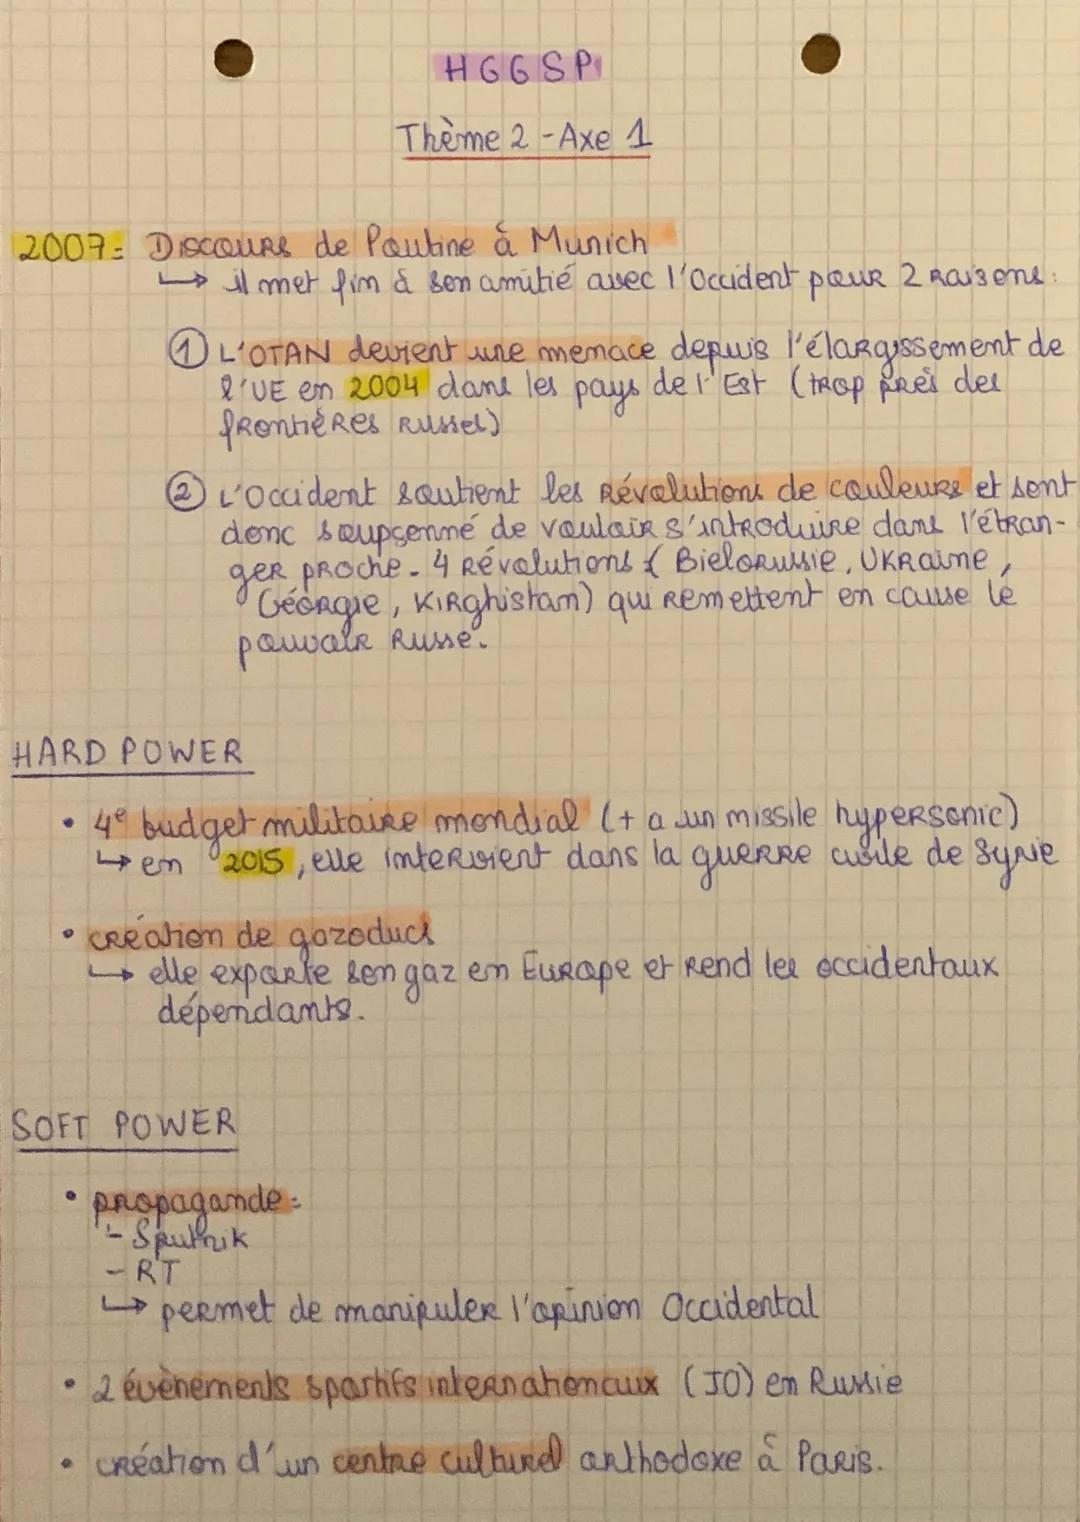 HGGSP
Thème 2 - Axe 1
2007: Discours de Poutine à Munich
↳ il met fin à son amitié avec l'Occident pour 2 raisons:
① L'OTAN devient une menace depuis l'élargissement de
l'UE en 2004 dans les pays de l'Est (trop près des
frontières russes)
② L'Occident soutient les révolutions de couleurs et sont
donc soupçonné de vouloir s'introduire dans l'étran-
ger proche. 4 révolutions (Biélorussie, Ukraine,
Géorgie, Kirghistan) qui remettent en cause le
pouvoir russe.
HARD POWER
• 4e budget militaire mondial (+ a un missile hypersonic)
↳ en 2015, elle intervient dans la guerre civile de Syrie
• création de gazoducs
↳ elle exporte son gaz en Europe et rend les occidentaux
dépendants.
SOFT POWER
• propagande:
- Sputnik
- RT
↳ permet de manipuler l'opinion Occidental
• 2 évènements sportifs internationaux (JO) en Russie
• création d'un centre culturel orthodoxe à Paris.